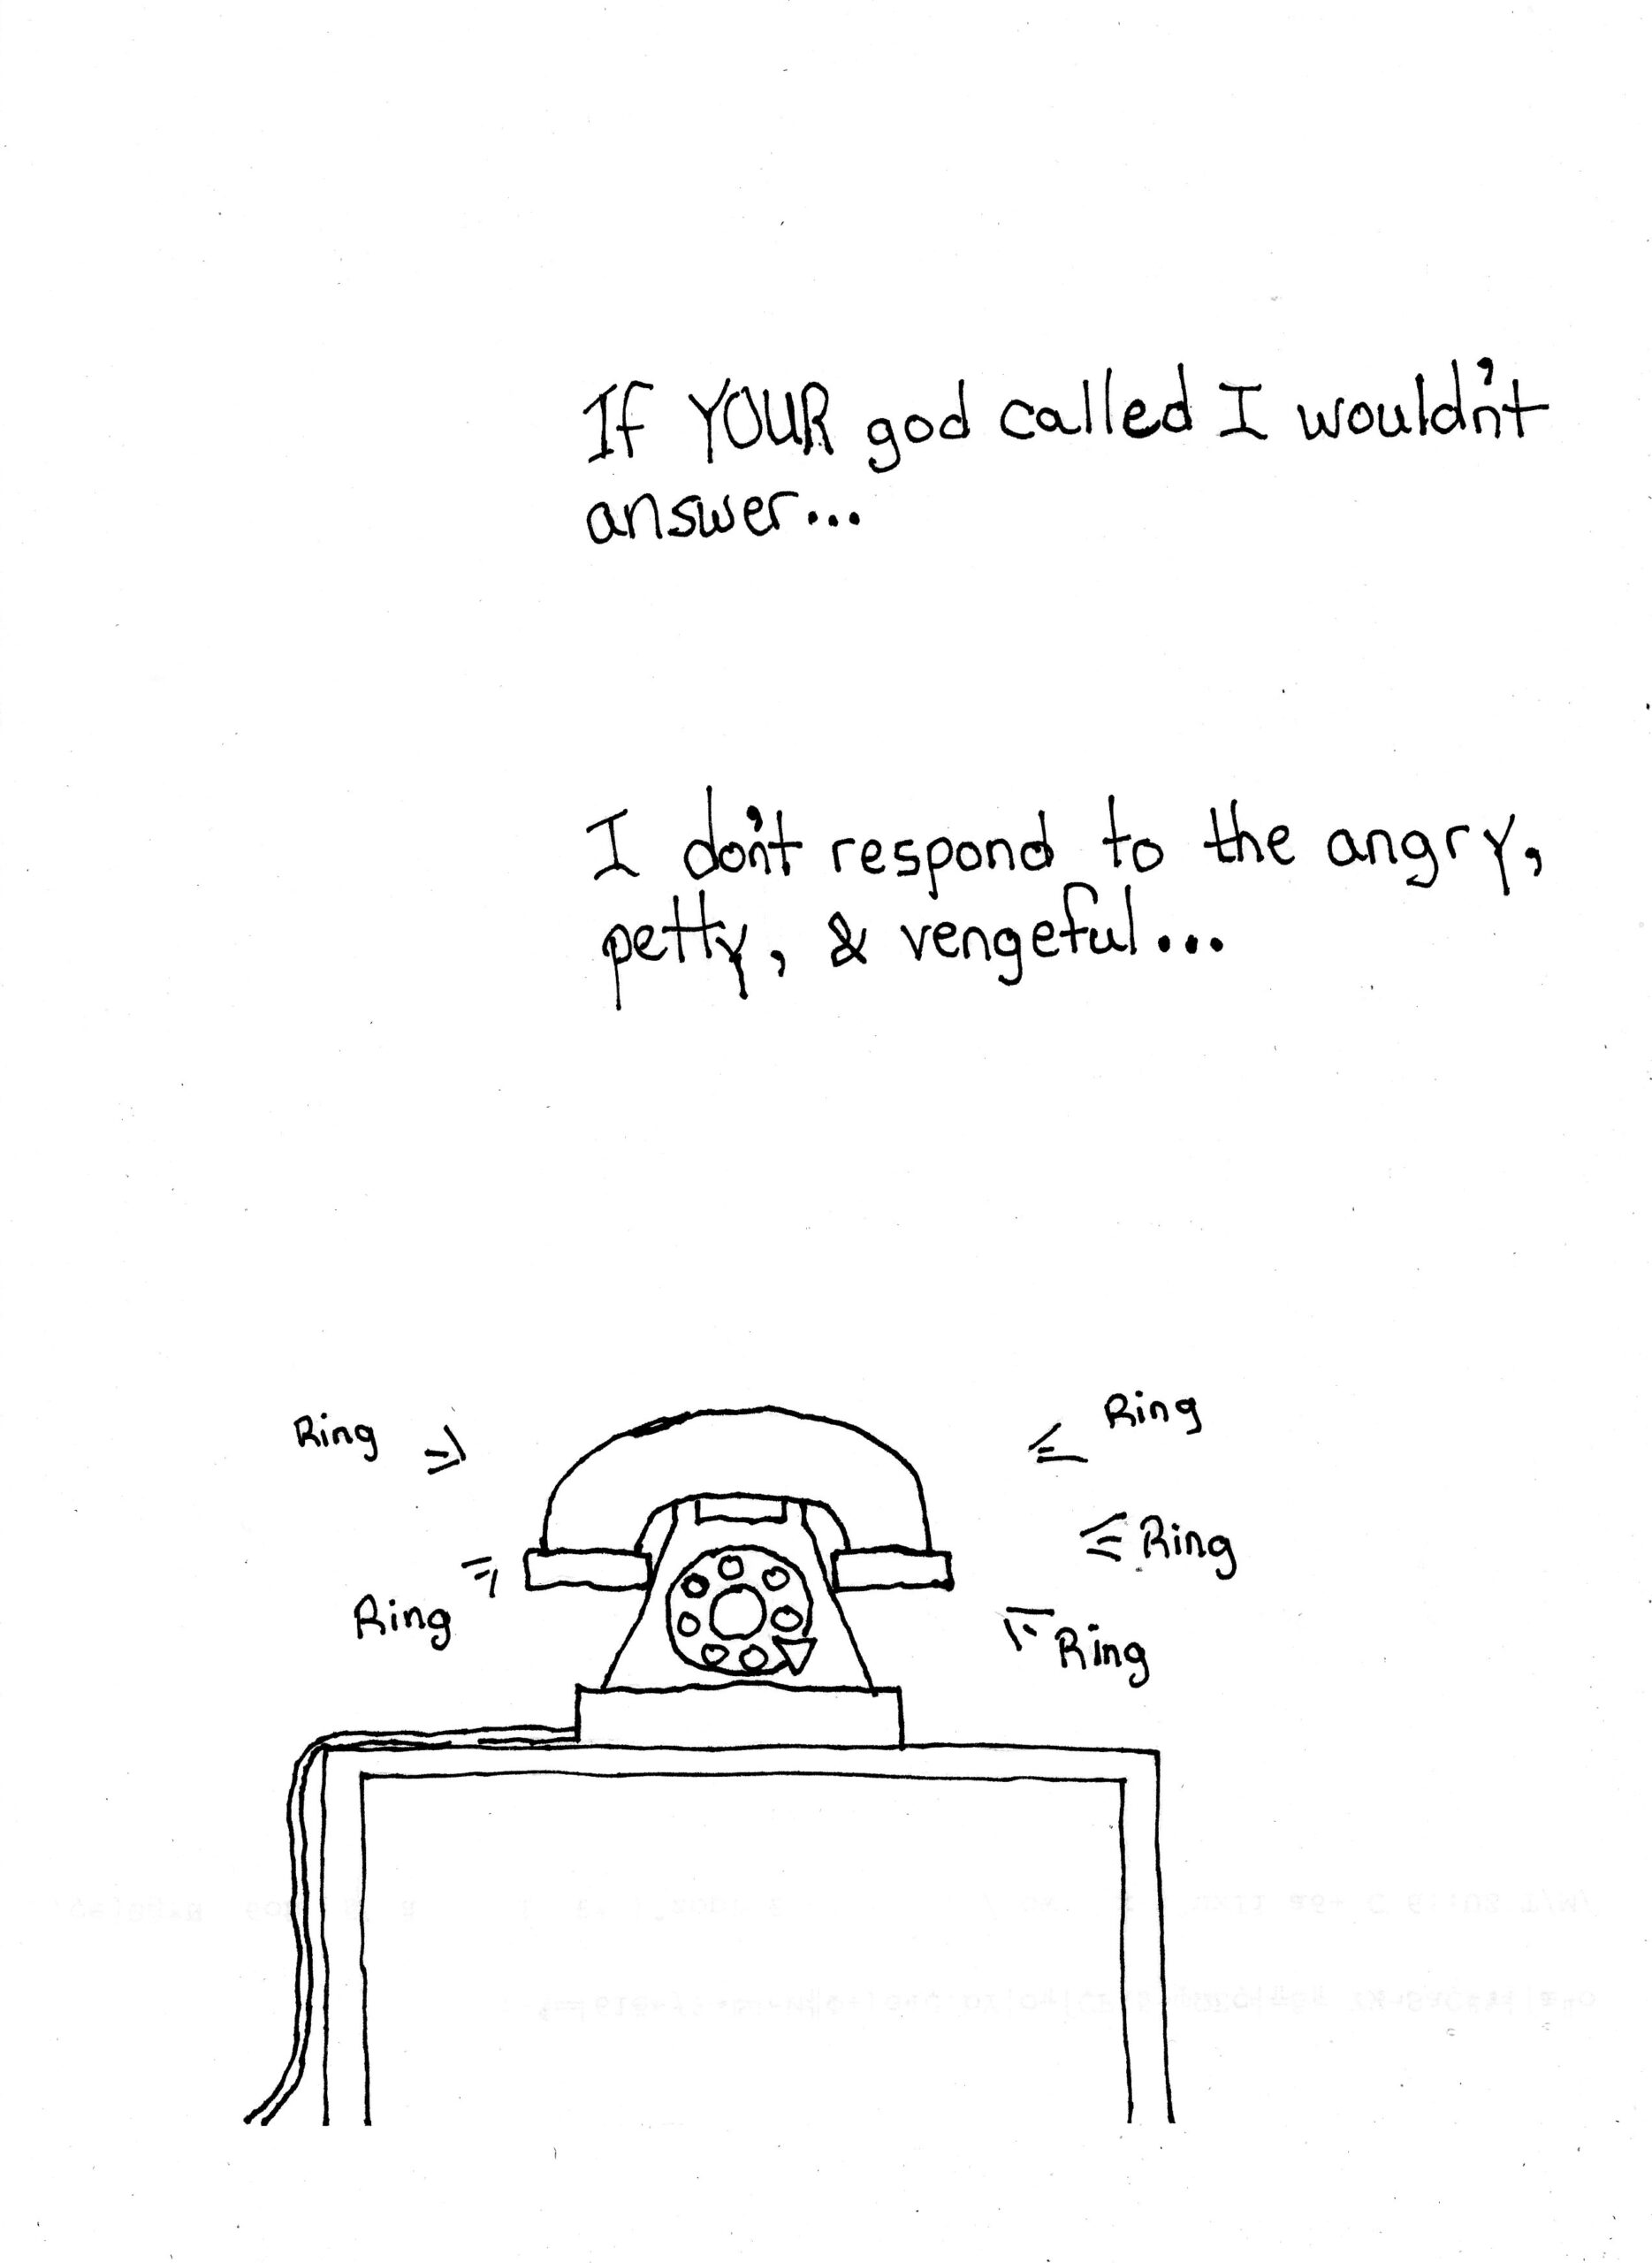 If YOUR god called I wouldn't
answer...
I don't respond to the angry,
petty, & vengeful...
Ring
Ring
Ring
Ring
Ring